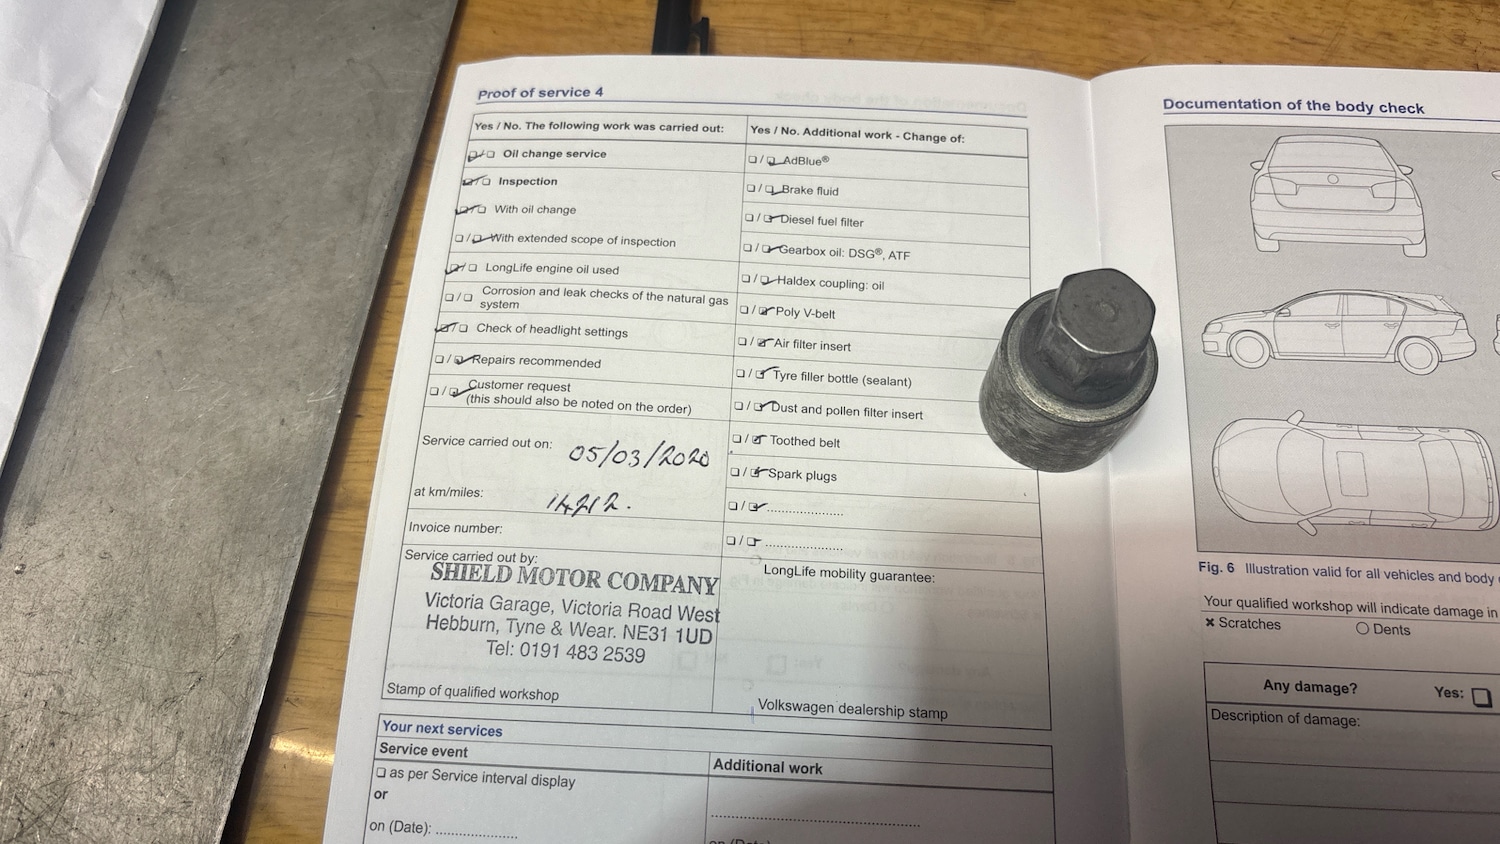 Proof of service 4
Yes / No. The following work was carried out:
Oil change service
Inspection
With oil change
With extended scope of inspection
LongLife engine oil used
Corrosion and leak checks of the natural gas
system
Check of headlight settings
Repairs recommended
Customer request
(this should also be noted on the order)
Service carried out on: 05/03/2020
at km/miles: 14212.
Invoice number:
Service carried out by:
SHIELD MOTOR COMPANY
Victoria Garage, Victoria Road West
Hebburn, Tyne & Wear. NE31 1UD
Tel: 0191 483 2539
Stamp of qualified workshop
Yes / No. Additional work - Change of:
AdBlue®
Brake fluid
Diesel fuel filter
Gearbox oil: DSG®, ATF
Haldex coupling: oil
Poly V-belt
Air filter insert
Tyre filler bottle (sealant)
Dust and pollen filter insert
Toothed belt
Spark plugs
LongLife mobility guarantee:
Volkswagen dealership stamp
Your next services
Service event
as per Service interval display
or
on (Date): ..................
Additional work
Documentation of the body check
Fig. 6 Illustration valid for all vehicles and body
Your qualified workshop will indicate damage in
× Scratches
Dents
Any damage?
Yes:
Description of damage: